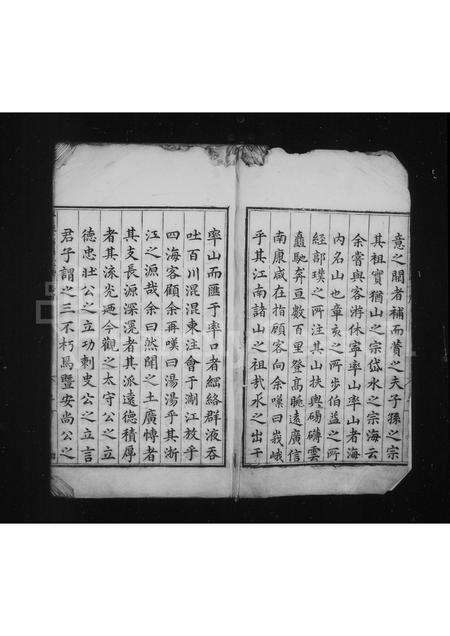 意之闕者補而贊之夫子孫之宗
其祖實猶山之宗岱水之宗海云
余嘗與客游休寧率山率山者海
内名山也章亥之所步伯益之所
經郭璞之所注其山扶輿磅礴雲
矗馳奔亘數百里登高眺遠廣信
南康咸在指顧客向余嘆曰峩峩
乎其江南諸山之祖哉水之出于
率山而匯于率口者經絡群液吞
吐百川混混東注會于淛江放乎
四海客顧余再嘆曰湯湯乎其浙
江之源哉余曰然聞之土廣博者
其支長源深滛者其派遠德積厚
者其流光廼今觀之太守公之立
德忠壯公之立功刺史公之立言
君子謂之三不朽焉暨安尚公之